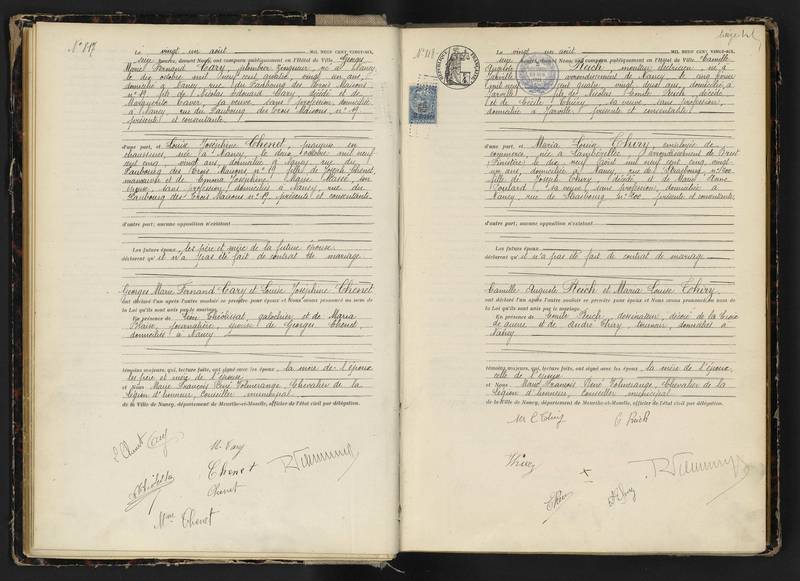 Le vingt un août MIL NEUF CENT VINGT-SIX,
heures, devant Nous, ont comparu publiquement en l'Hôtel de Ville, Georges
Marie Fernand Cary, plombier zingueur, né à Nancy
le dix octobre mil neuf cent quatre, vingt un ans,
domicilié à Nancy, rue du Faubourg des Trois Maisons
n° 19 fils de Nicolas Edouard Cary, décédé et de
Marguerite sa veuve, sans profession, domiciliée
à Nancy rue du Faubourg des Trois Maisons, n° 19,
présente et consentante.
d'une part, et Louise Joséphine Chenet, piqueuse en
chaussures, née à Nancy, le deux octobre mil neuf
cent cinq, vingt ans, domiciliée à Nancy rue du
Faubourg des Trois Maisons n° 19 fille de Joseph Chenet,
manoeuvre et de Joséphine Marie Masse son
épouse, sans profession, domiciliés à Nancy, rue du
Faubourg des Trois Maisons n° 19, présents et consentants.
d'autre part; aucune opposition n'existant
Les futurs époux, les père et mère de la future épouse
déclarent qu'il n'a pas été fait de contrat de mariage.
Georges Marie Fernand Cary et Louise Joséphine Chenet
ont déclaré l'un après l'autre vouloir se prendre pour époux et Nous avons prononcé au nom de
la Loi qu'ils sont unis par le mariage.
En présence de Léon galochier et de Maria
journalière, épouse de Georges Chenet,
domiciliés à Nancy
témoins majeurs, qui, lecture faite, ont signé avec les époux, la mère de l'époux
les père et mère de l'épouse
et Nous Marie François René Volmerange, Chevalier de la
Légion d'honneur, Conseiller municipal
de la Ville de Nancy, département de Meurthe-et-Moselle, officier de l'état civil par délégation.
Chenet
Chenet
Mme Chenet
Le vingt un août MIL NEUF CENT VINGT-SIX,
heures, devant Nous, ont comparu publiquement en l'Hôtel de Ville, Camille
Auguste Reich, né à
Jarville arrondissement de Nancy le cinq
mil neuf cent quatre, vingt deux ans, domicilié à
Jarville fils de Nicolas Emile Reich, décédé
et de Cécile Thiéry, sa veuve, sans profession,
domiciliée à Jarville, présente et consentante
d'une part, et Maria Louise Thiry, employée de
commerce, née à arrondissement de
le neuf août mil neuf cent cinq, vingt
un ans, domiciliée à Nancy, rue de Strasbourg, n° 200
fille de Joseph Thiry, décédé, et de Marie Anne
sa veuve, sans profession, domiciliée à
Nancy, rue de Strasbourg n° 200, présente et consentante,
d'autre part; aucune opposition n'existant
Les futurs époux
déclarent qu'il n'a pas été fait de contrat de mariage
Camille Auguste Reich et Maria Louise Thiry
ont déclaré l'un après l'autre vouloir se prendre pour époux et Nous avons prononcé au nom de
la Loi qu'ils sont unis par le mariage.
En présence de Emile Reich, dessinateur, décoré de la Croix
de guerre, et de André Thiry tourneur, domiciliés à
Nancy
témoins majeurs, qui, lecture faite, ont signé avec les époux, la mère de l'époux,
celle de l'épouse
et Nous Marie François René Volmerange, Chevalier de la
Légion d'honneur, Conseiller municipal
de la Ville de Nancy, département de Meurthe-et-Moselle, officier de l'état civil par délégation.
Reich